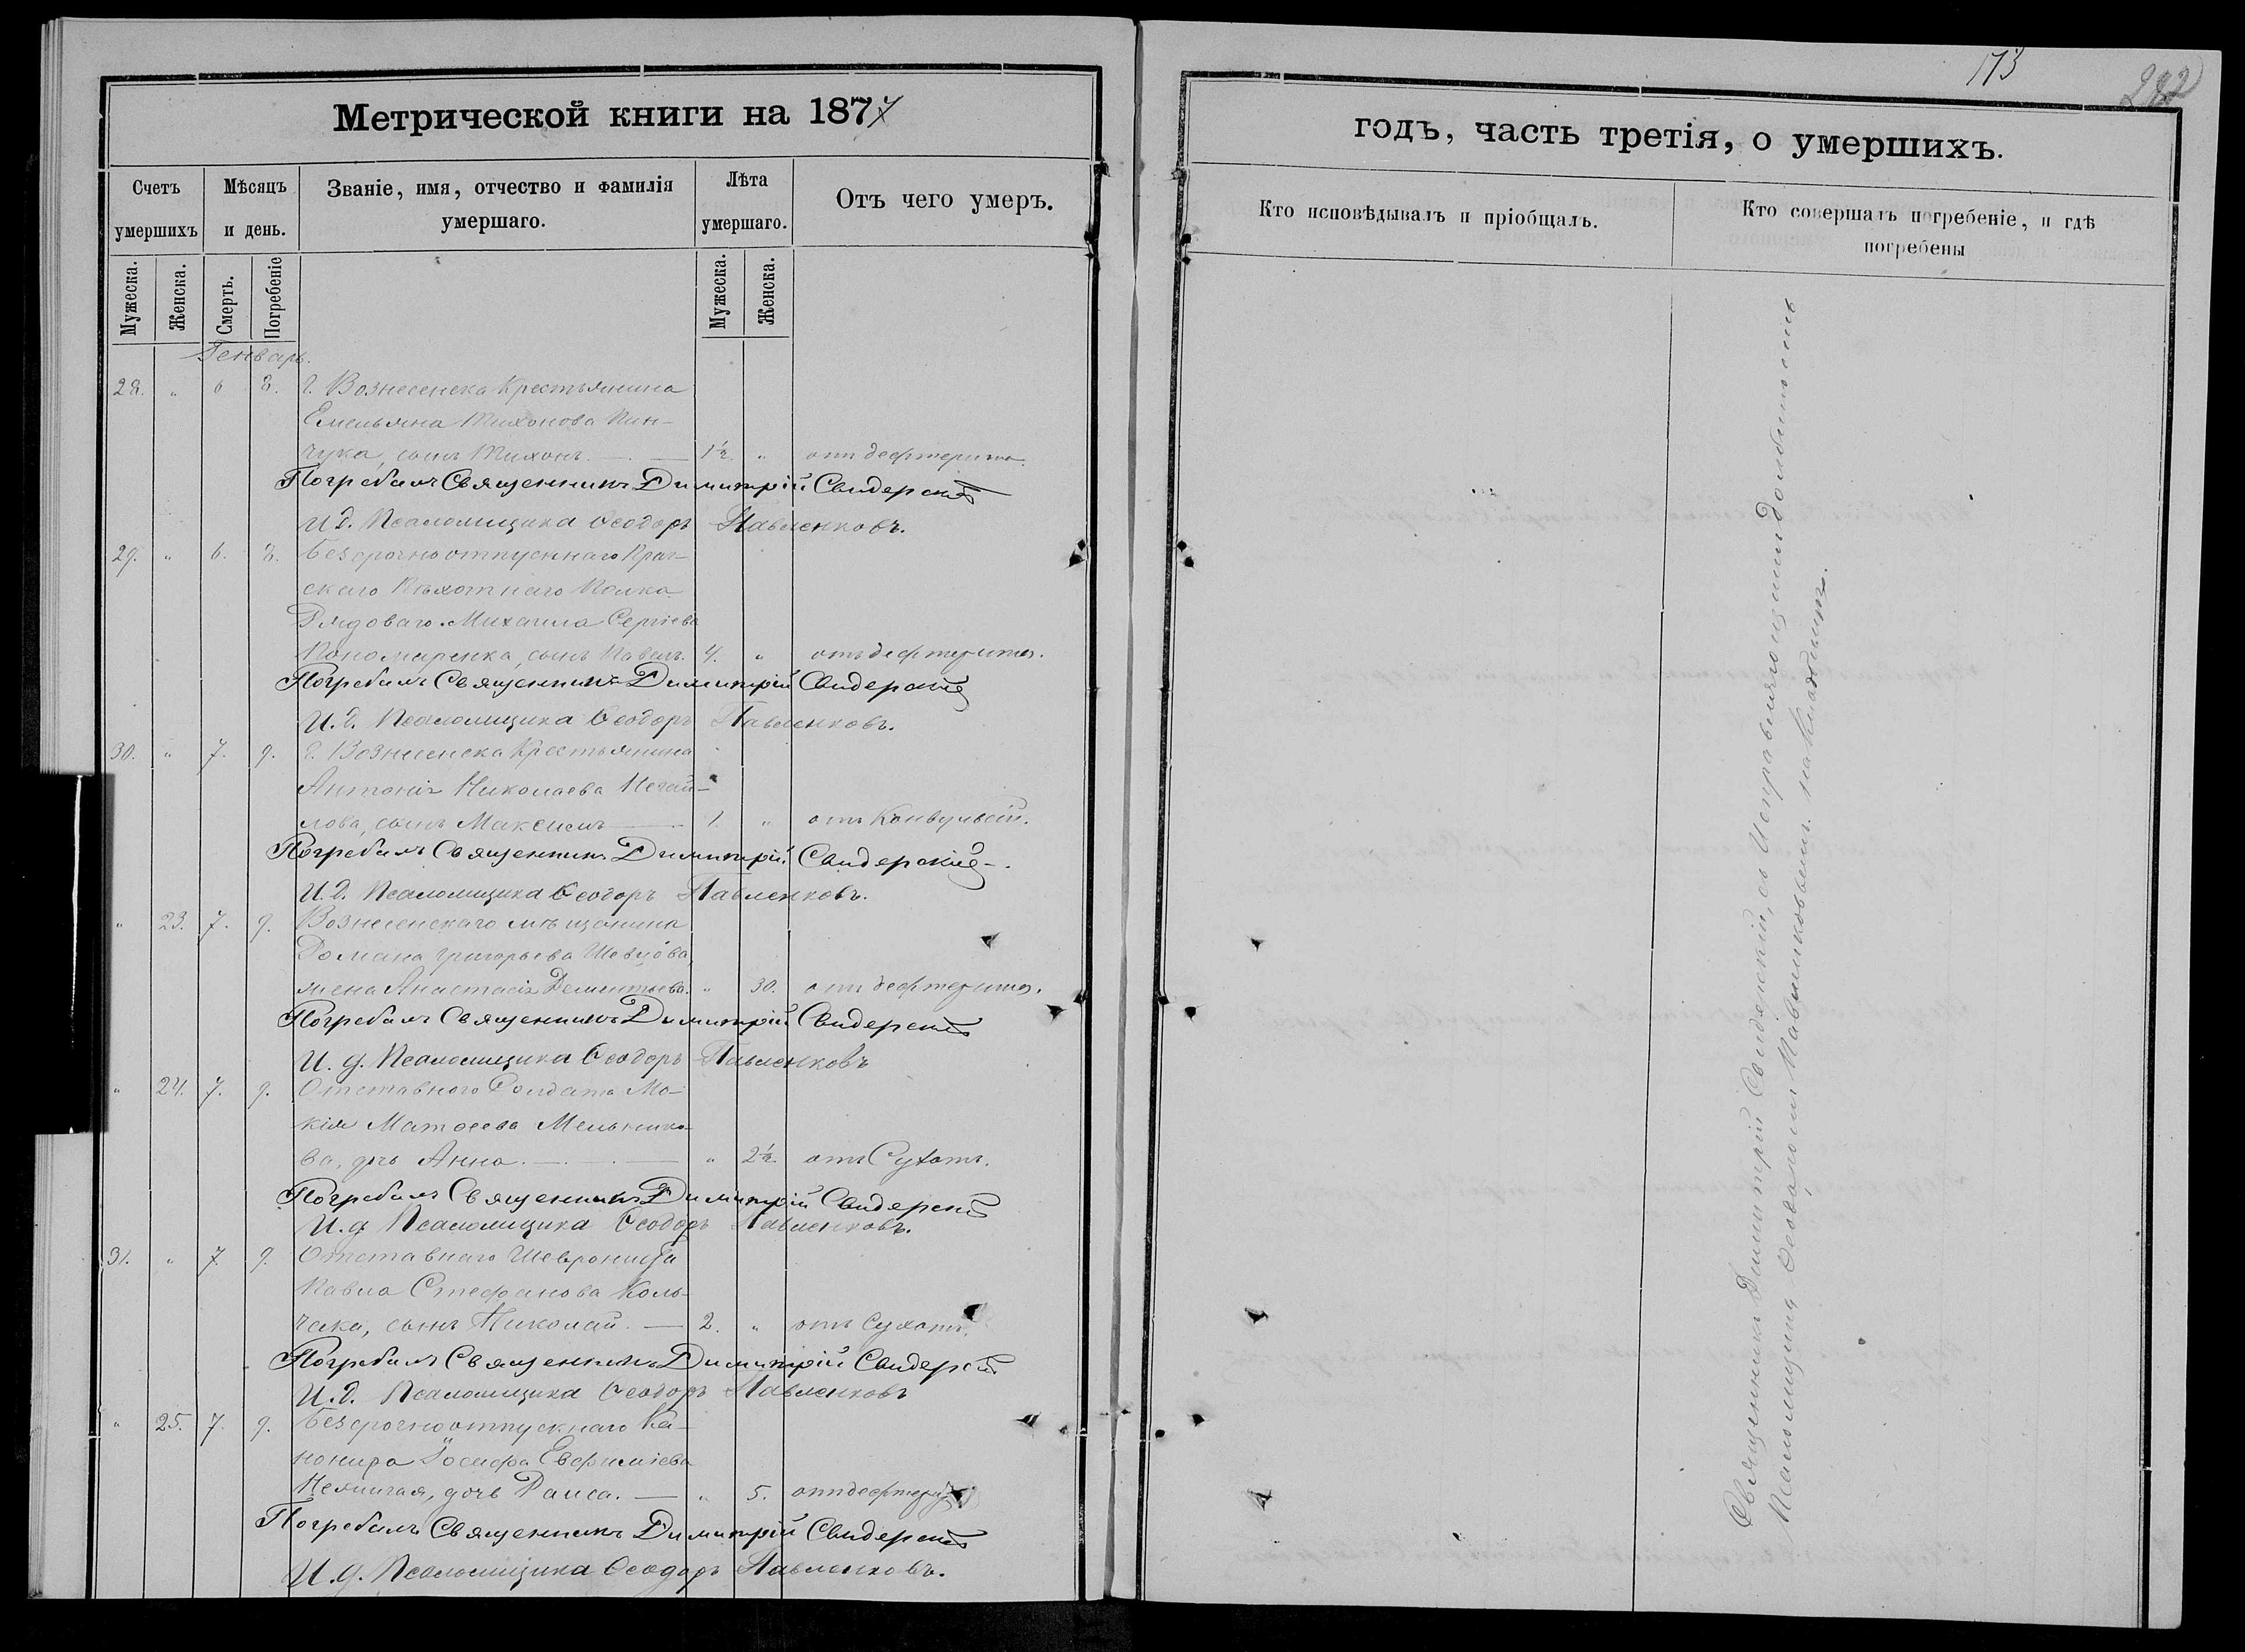 Метрической книги на 1877
Счетъ умершихъ
Мѣсяцъ и день.
Званіе, имя, отчество и фамилія умершаго.
Лѣта умершаго.
Отъ чего умеръ.
Мужеска.
Женска.
Смерть.
Погребеніе
Мужеска.
Женска.
Генварь.
28. " 6 8. г. Вознесенска Крестьянина
Емельяна Тихонова Пин-
чука, сынъ Тихонъ. — 1½. " отъ дефтерита.
Погребалъ Священникъ Димитрій Свидерскій
И. д. Псаломщика Ѳеодоръ Павленковъ.
29. " 6. 8. Безсрочноотпускнаго Праг-
скаго Пѣхотнаго Полка
Рядоваго Михаила Сергіева
Пономаренка, сынъ Павелъ. 4. " отъ дефтерита.
Погребалъ Священникъ Димитрій Свидерскій
И. д. Псаломщика Ѳеодоръ Павленковъ.
30. " 7. 9. г. Вознесенска Крестьянина
Антонія Николаева
лова, сынъ Максимъ — 1. " отъ Конвульсій.
Погребалъ Священникъ Димитрій Свидерскій
И. д. Псаломщика Ѳеодоръ Павленковъ.
" 23. 7. 9. Вознесенскаго мѣщанина
Романа Григорьева Шевцова,
жена Анастасія Дементьева. " 30. отъ дефтерита.
Погребалъ Священникъ Димитрій Свидерскій
И. д. Псаломщика Ѳеодоръ Павленковъ
" 24. 7. 9. Отставного Солдата Мо-
кія Матѳеева Мельнико-
ва, дочь Анна. — " 2½. отъ Сухотъ.
Погребалъ Священникъ Димитрій Свидерскій
И. д. Псаломщика Ѳеодоръ Павленковъ.
31. " 7. 9. Отставнаго Шеврониста
Павла Стефанова Коль-
чака, сынъ Николай. — 2. " отъ Сухотъ.
Погребалъ Священникъ Димитрій Свидерскій
И. д. Псаломщика Ѳеодоръ Павленковъ
" 25. 7. 9. Безсрочноотпускнаго Ка-
нонира Іосифа Евфиміева
дочь Раиса. — " 5. отъ дефтерита
Погребалъ Священникъ Димитрій Свидерскій
И. д. Псаломщика Ѳеодоръ Павленковъ.
173
годъ, часть третія, о умершихъ.
Кто исповѣдывалъ и пріобщалъ.
Кто совершалъ погребеніе, и гдѣ погребены
Священникъ Димитрій Свидерскій, съ Исправляющимъ должность
Псаломщика Ѳеодоромъ Павленковымъ. на Кладбищѣ.